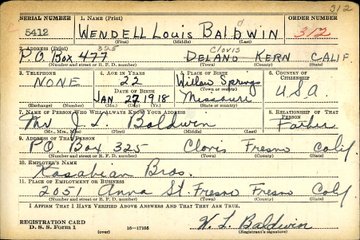 312
SERIAL NUMBER 1. NAME (Print) ORDER NUMBER
5412 WENDELL LOUIS BALDWIN 312
(First) (Middle) (Last)
2. ADDRESS (Print) 325 Clovis
P.O. BOX 477 DELANO KERN CALIF.
(Number and street or R. F. D. number) (Town) (County) (State)
3. TELEPHONE 4. AGE IN YEARS 5. PLACE OF BIRTH 6. COUNTRY OF CITIZENSHIP
NONE 22 Willow Springs U.S.A.
DATE OF BIRTH (Town or county)
JAN 27 1918 Missouri
(Exchange) (Number) (Mo.) (Day) (Yr.) (State or country)
7. NAME OF PERSON WHO WILL ALWAYS KNOW YOUR ADDRESS 8. RELATIONSHIP OF THAT PERSON
J. L. Baldwin Father
(Mr., Mrs., Miss) (First) (Middle) (Last)
9. ADDRESS OF THAT PERSON
P.O. Box 325 Clovis Fresno Calif
(Number and street or R. F. D. number) (Town) (County) (State)
10. EMPLOYER'S NAME
Kasabian Bros.
11. PLACE OF EMPLOYMENT OR BUSINESS
2051 Anna St. Fresno Fresno Calif
(Number and street or R. F. D. number) (Town) (County) (State)
I AFFIRM THAT I HAVE VERIFIED ABOVE ANSWERS AND THAT THEY ARE TRUE.
REGISTRATION CARD
D. S. S. Form 1 16—17105 W. L. Baldwin
(Registrant's signature)